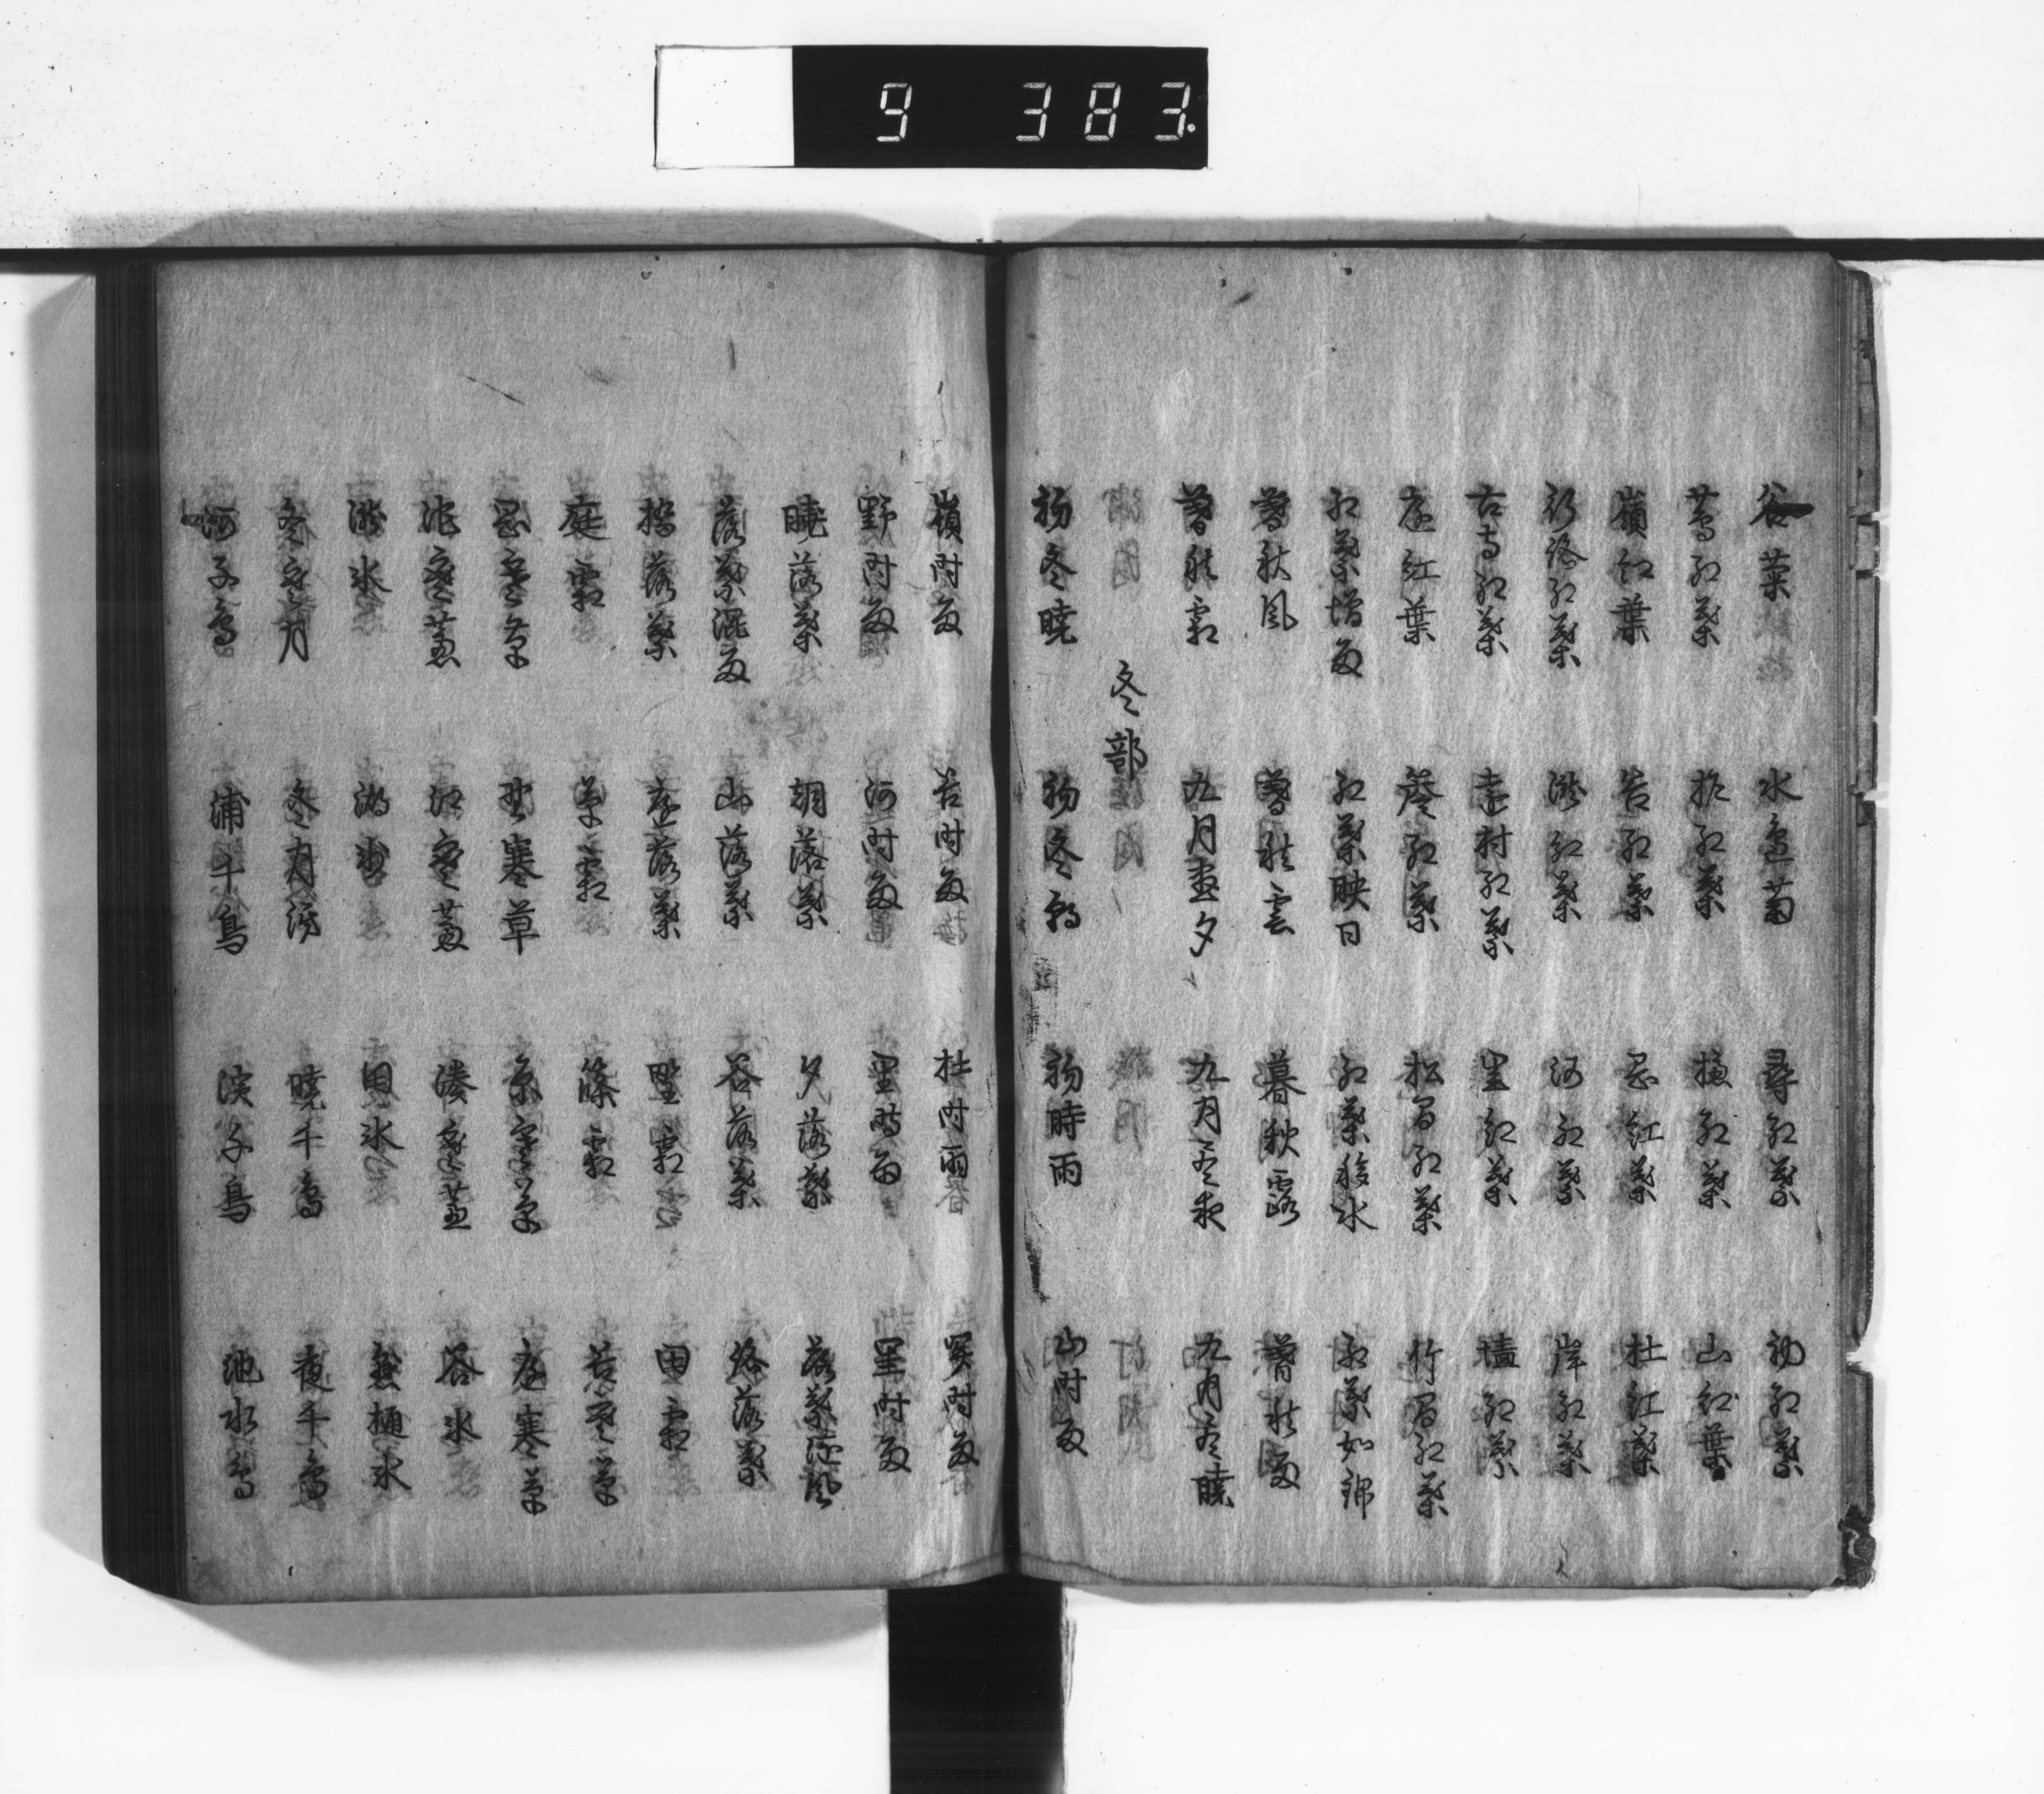 9 383.
谷菊 水辺菊 尋紅葉 初紅葉
蔦紅葉 柞紅葉 櫨紅葉 山紅葉
嶺紅葉 岩紅葉 岡紅葉 杜紅葉
行路紅葉 滝紅葉 河紅葉 岸紅葉
古寺紅葉 遠村紅葉 里紅葉 墻紅葉
庭紅葉 窓紅葉 松間紅葉 竹間紅葉
紅葉増雨 紅葉映日 紅葉移水 紅葉如錦
暮秋風 暮秋雲 暮秋露 暮秋雨
暮秋霜 九月尽夕 九月尽夜 九月尽暁
冬部
初冬暁 初冬朝 初時雨 山時雨
嶺時雨 杜時雨 関時雨
野時雨 河時雨 里時雨
暁落葉 朝落葉 夕落葉 落葉随風
落葉混雨 山落葉 谷落葉 路落葉
橋落葉 庭落葉 野霜 田霜
庭霜 草霜 篠霜
岡寒草 野寒草 庭寒草
江寒芦 湊寒芦 谷氷
滝氷 田氷 懸樋氷
冬寒月 暁千鳥 夜千鳥
河千鳥 浦千鳥 浜千鳥 池水鳥